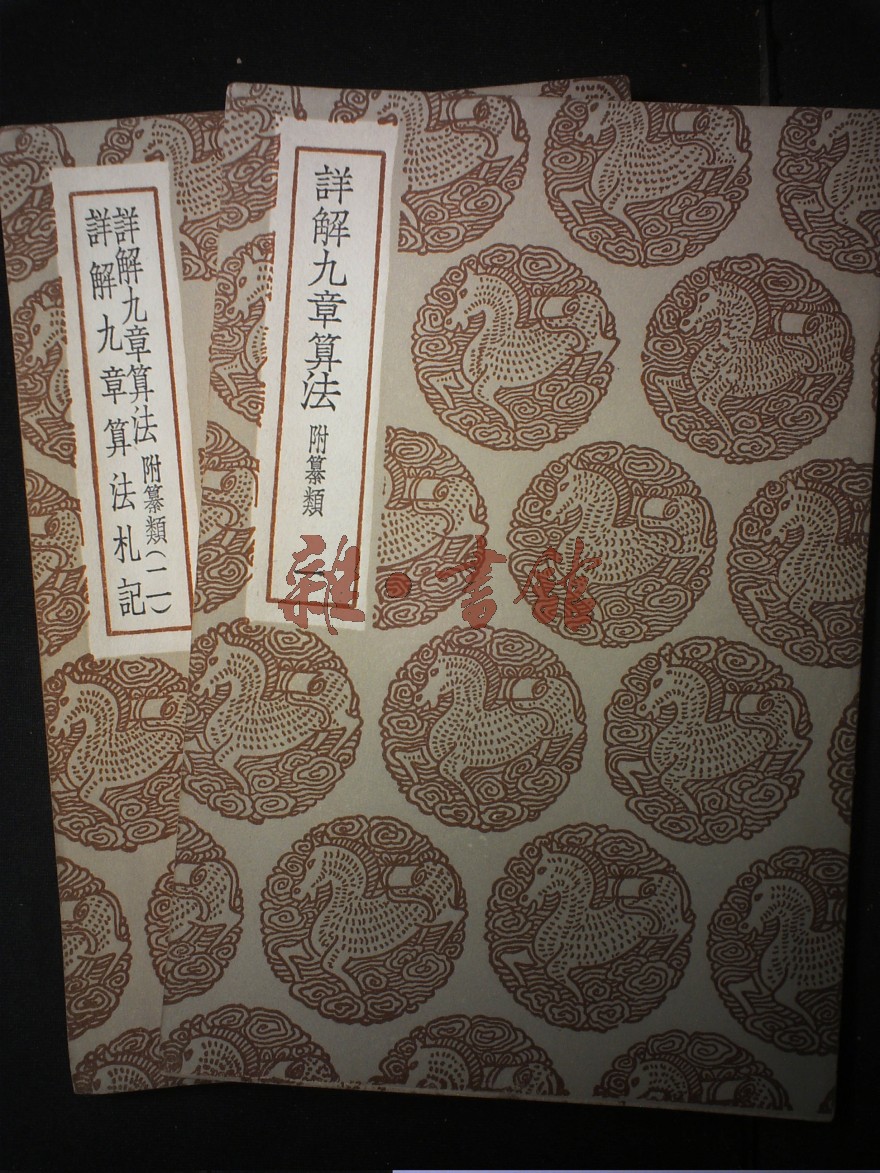 詳解九章算法 附纂類 一
詳解九章算法 附纂類(二)
詳解九章算法札記
雜·書館